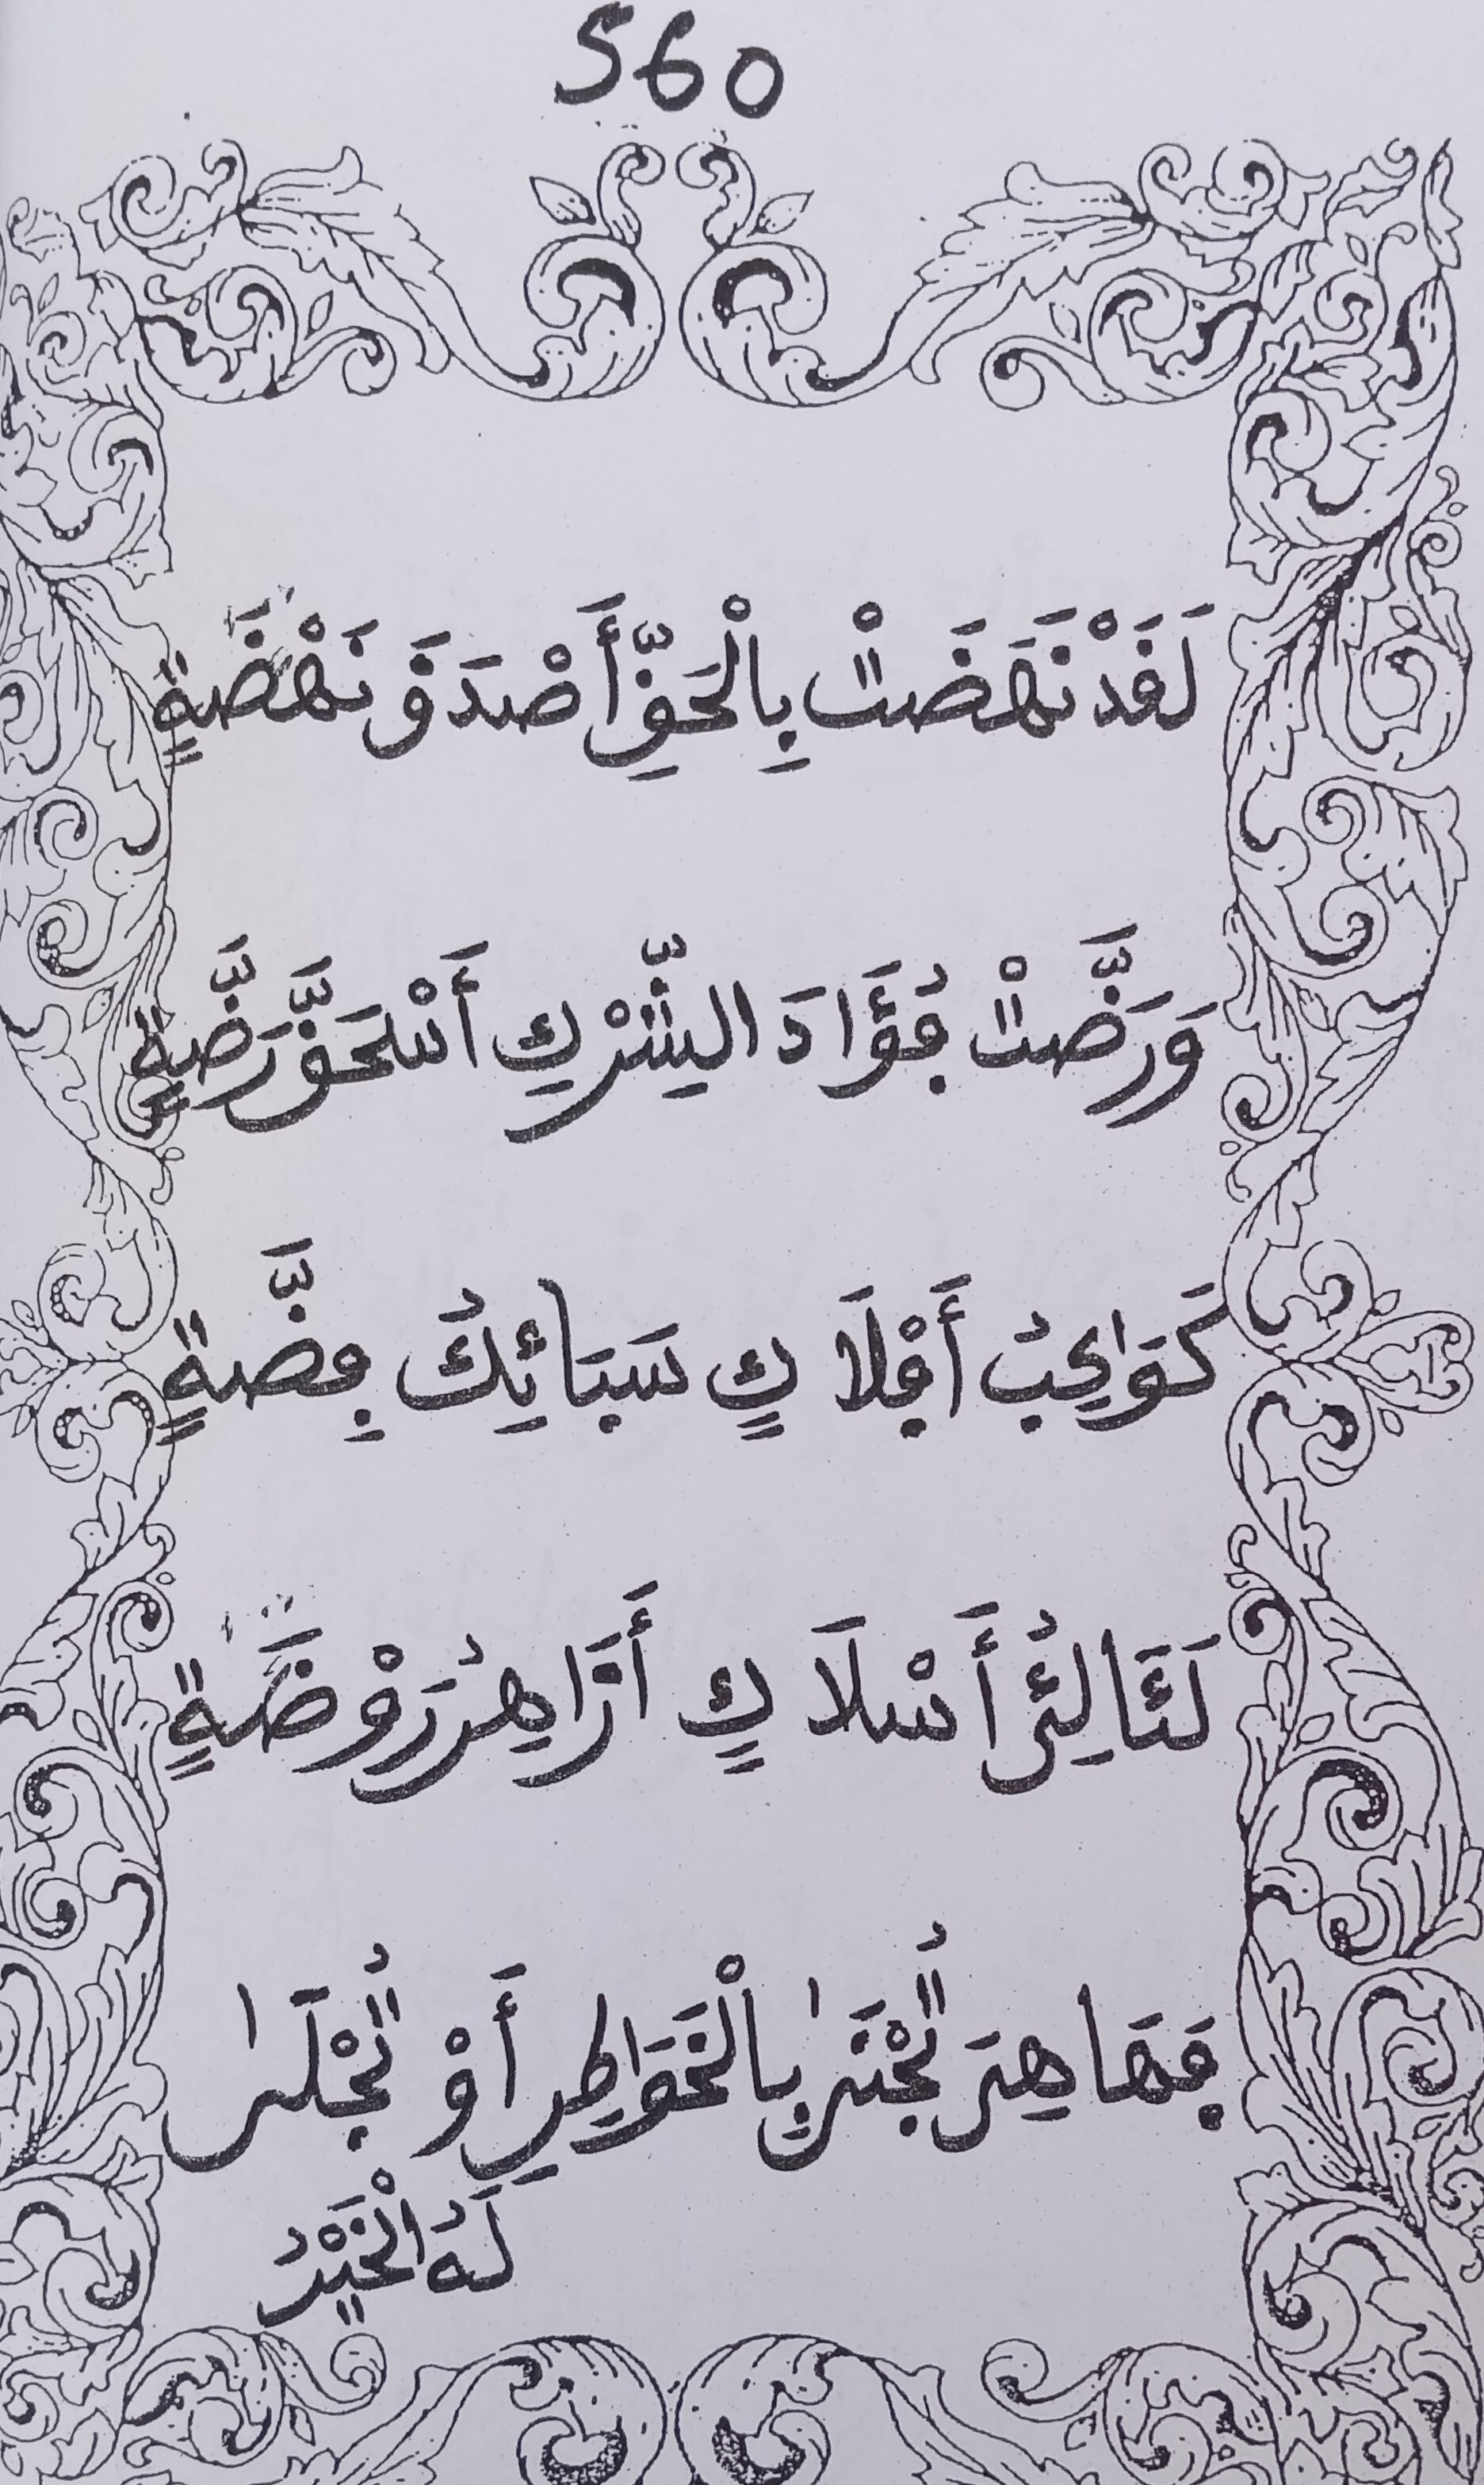 560
لَقَدْ نَهَضَتْ بِالْحَقِّ أَصْدَقَ نَهْضَةٍ
وَرَضَّتْ فُؤَادَ الشِّرْكِ أَسْحَقَ رَضَّةٍ
كَوَاكِبُ أَفْلَاكٍ سَبَائِكُ فِضَّةٍ
لَئَالِئُ أَسْلَاكٍ أَزَاهِرُ رَوْضَةٍ
فَهَا هِيَ تُجْنَىٰ بِالْخَوَاطِرِ أَوْ تُجْلَىٰ
لَهُ الْخَيْرُ